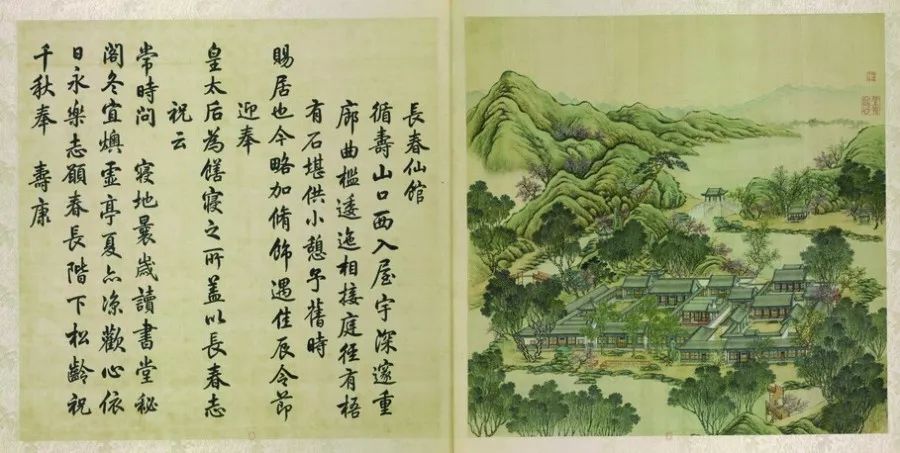 長春仙館
循壽山口西入屋宇深邃重
廊曲檻逶迤相接庭徑有梧
有石堪供小憩予舊時
賜居也今略加脩飾遇佳辰令節
迎奉
皇太后為饍寢之所蓋以長春志
祝云
常時問 寢地曩歲讀書堂秘
閣冬宜燠虛亭夏亦涼歡心依
日永樂志願春長階下松齡祝
千秋奉 壽康